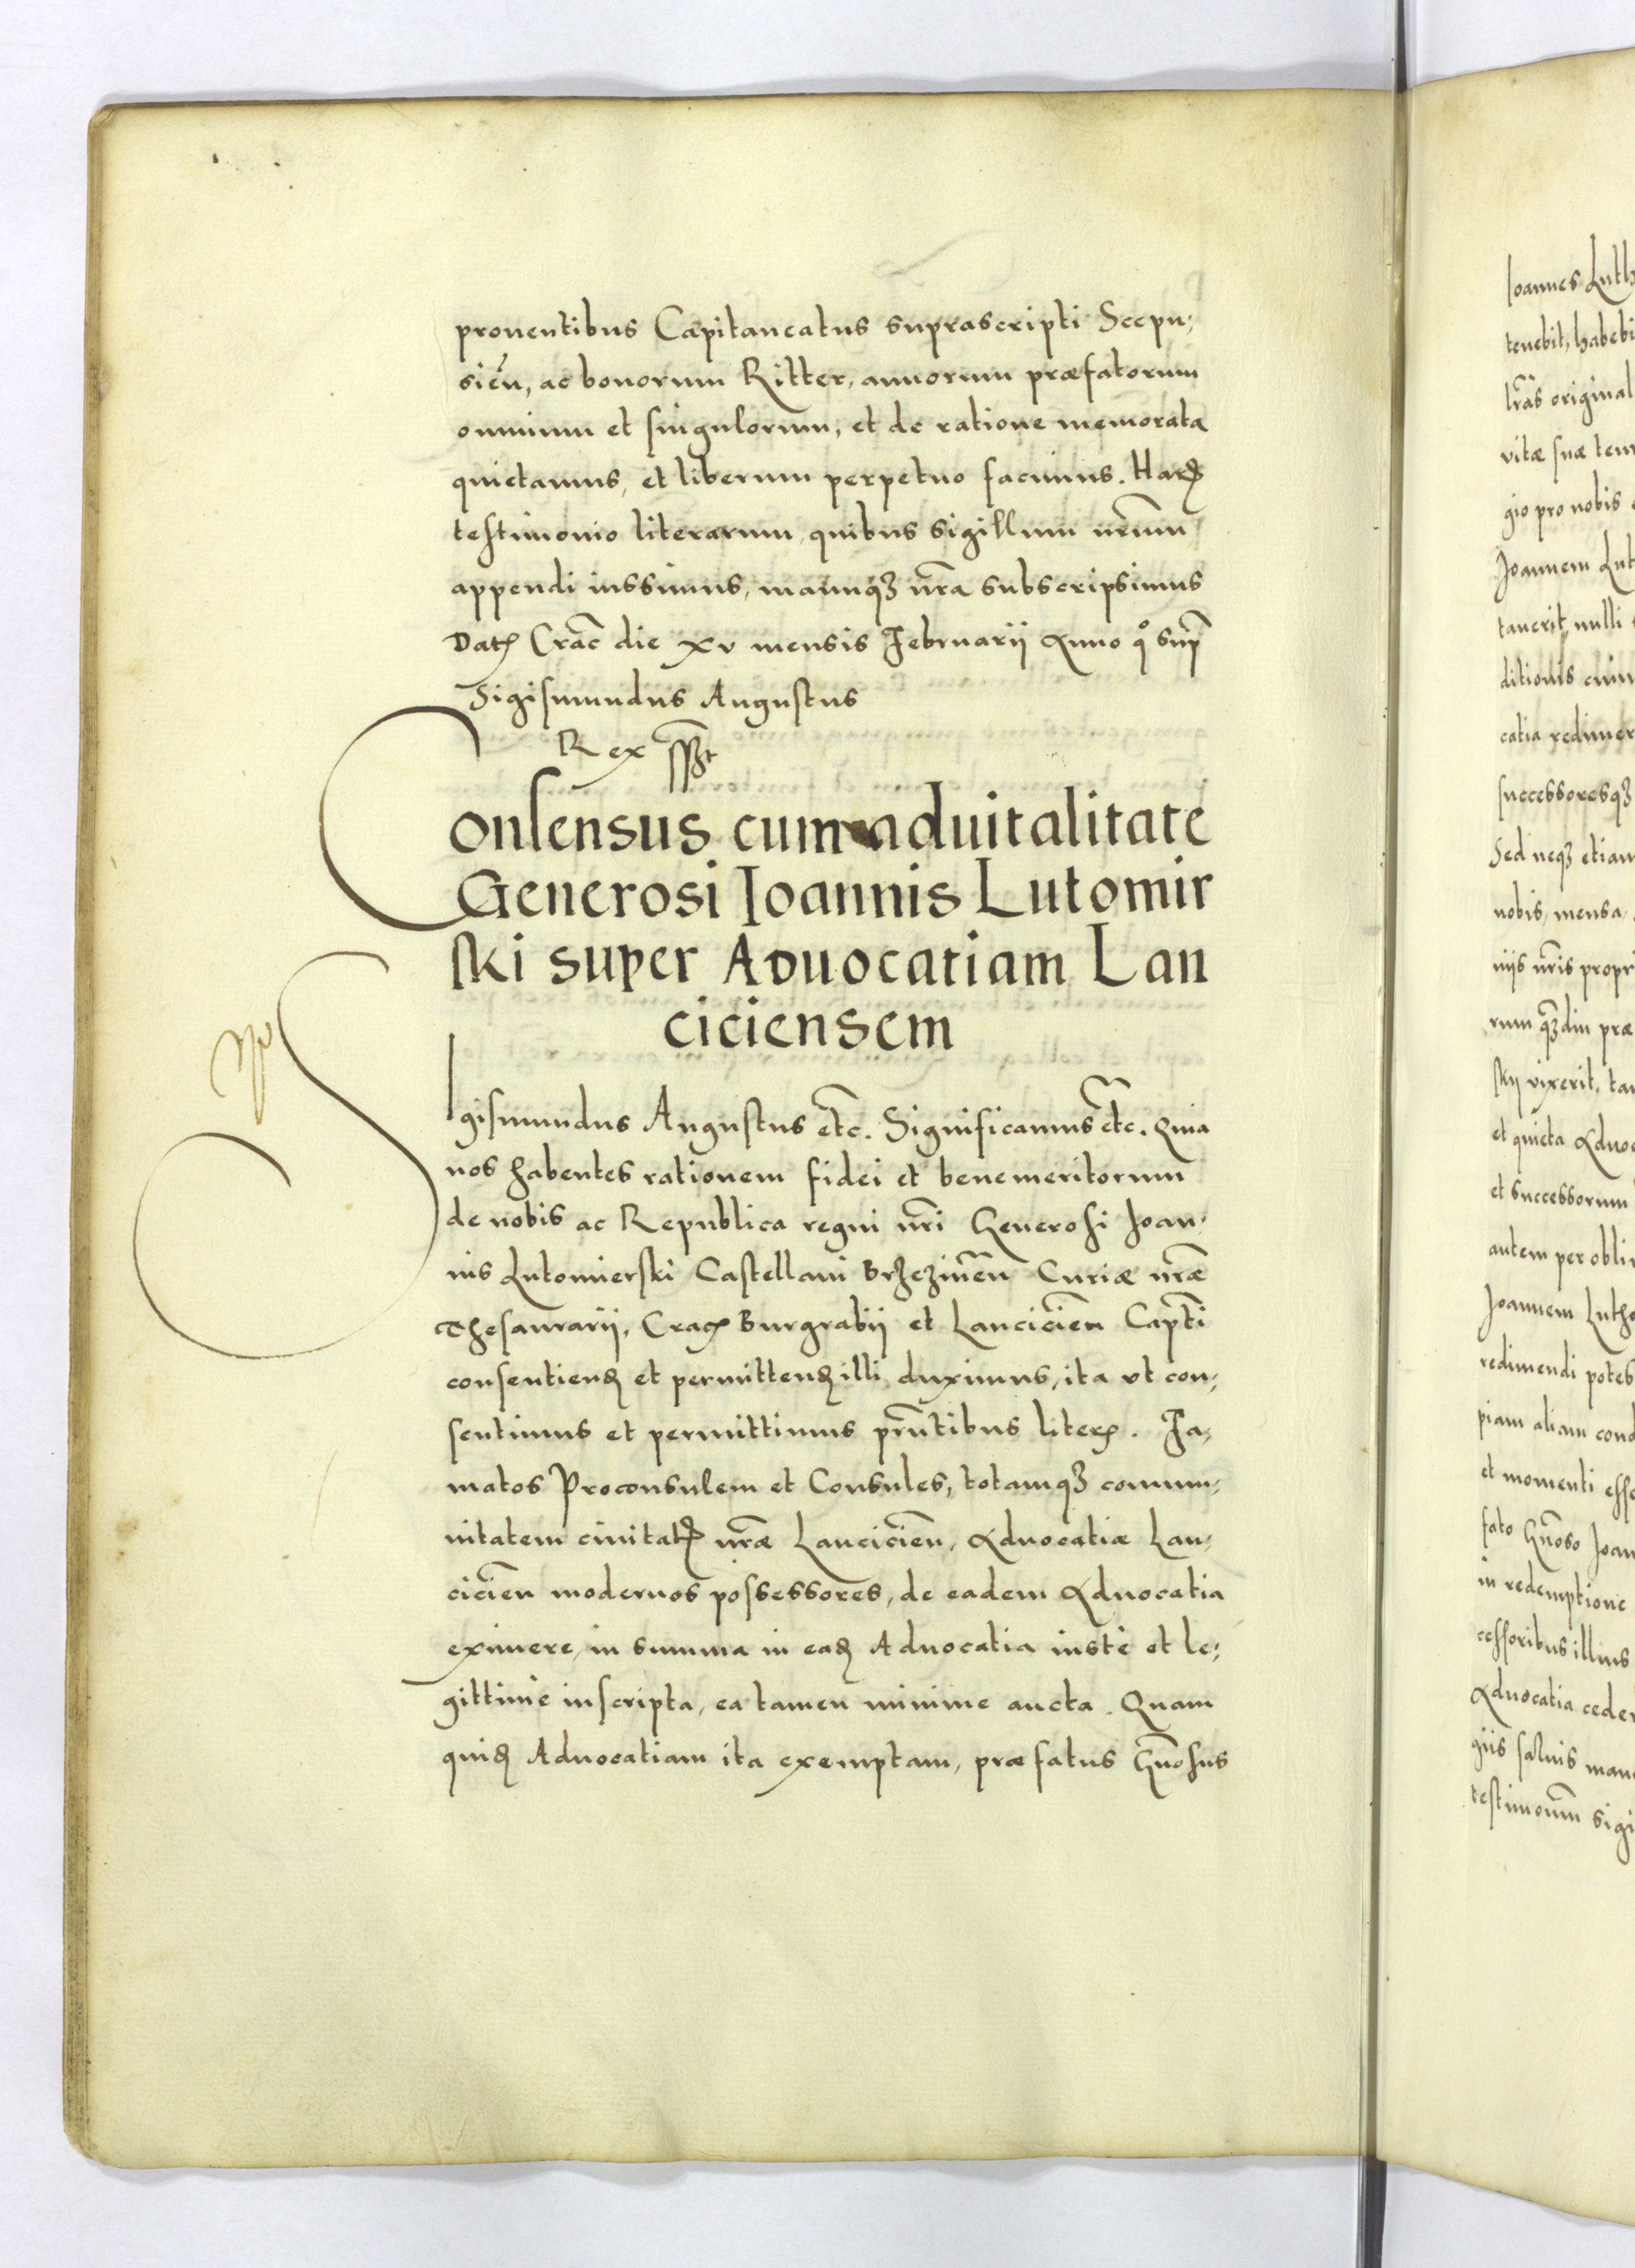 prouentibus Capitaneatus suprascripti Scepu,
sien̄, ac bonorum Ritter, annorum præfatorum
omnium et singulorum, et de ratione memorata
quietamus, et liberum perpetuo facimus. Harꝫ
testimonio literarum, quibus sigillum nr̄um
appendi iussimus, manuqꝫ nr̄a subscripsimus
Datꝭ Crac̄ die xv mensis Februarii Anno qͦ sup̄
Sigismundus Augustus
Rex sst
Consensus cum aduitalitate
Generosi Ioannis Lutomir
ski super Aduocatiam Lan
ciciensem
Sigismundus Augustus etc̄. Significamus etc̄. Quia
nos habentes rationem fidei et benemeritorum
de nobis ac Republica regni nr̄i Generosi Ioan,
nis Lutomierski Castellani Brzezinen̄ Curiæ nr̄æ
Thesaurarii, Cracꝭ Burgrabii et Lancicien̄ Capt̄i
consentienꝫ et permittenꝫ illi duximus, ita vt con,
sentimus et permittimus prn̄tibus literꝭ. Fa,
matos Proconsulem et Consules, totamqꝫ commu,
nitatem ciuitatꝭ nr̄æ Lancicien̄, Aduocatiæ Lan,
cicien̄ modernos possessores, de eadem Aduocatia
eximere, in summa in eaꝫ Aduocatia iustè et le,
gittimè inscripta, ea tamen minime aucta. Quam
quiꝫ Aduocatiam ita exemptam, præfatus Gn̄osus
Ioannes Luth
tenebit, habebi
lr̄as original
vitæ suæ tem
gio pro nobis
Ioannem Lut
nulli
ditionis
catia redimer
successoresqꝫ
Sed neqꝫ etiam
nobis, mensa,
niis nr̄is propri
rum qꝫdiu præ
skii vixerit, ta
et quieta Aduoc
et successorum
autem per obli
Ioannem Lutho
redimendi potes
piam aliam cond
et momenti esse
fato Gn̄oso Ioan
in redemptione
cessoribus illius
Aduocatia ceder
giis saluis man
testimonium sigi